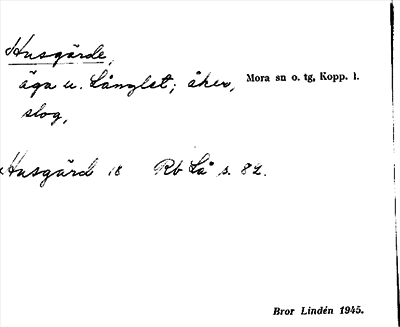 Husgärde,
äga u. Långlet; åker, Mora sn o. tg, Kopp. l.
slog,
Husgärd 18 Rb Lå s. 82.
Bror Lindén 1945.